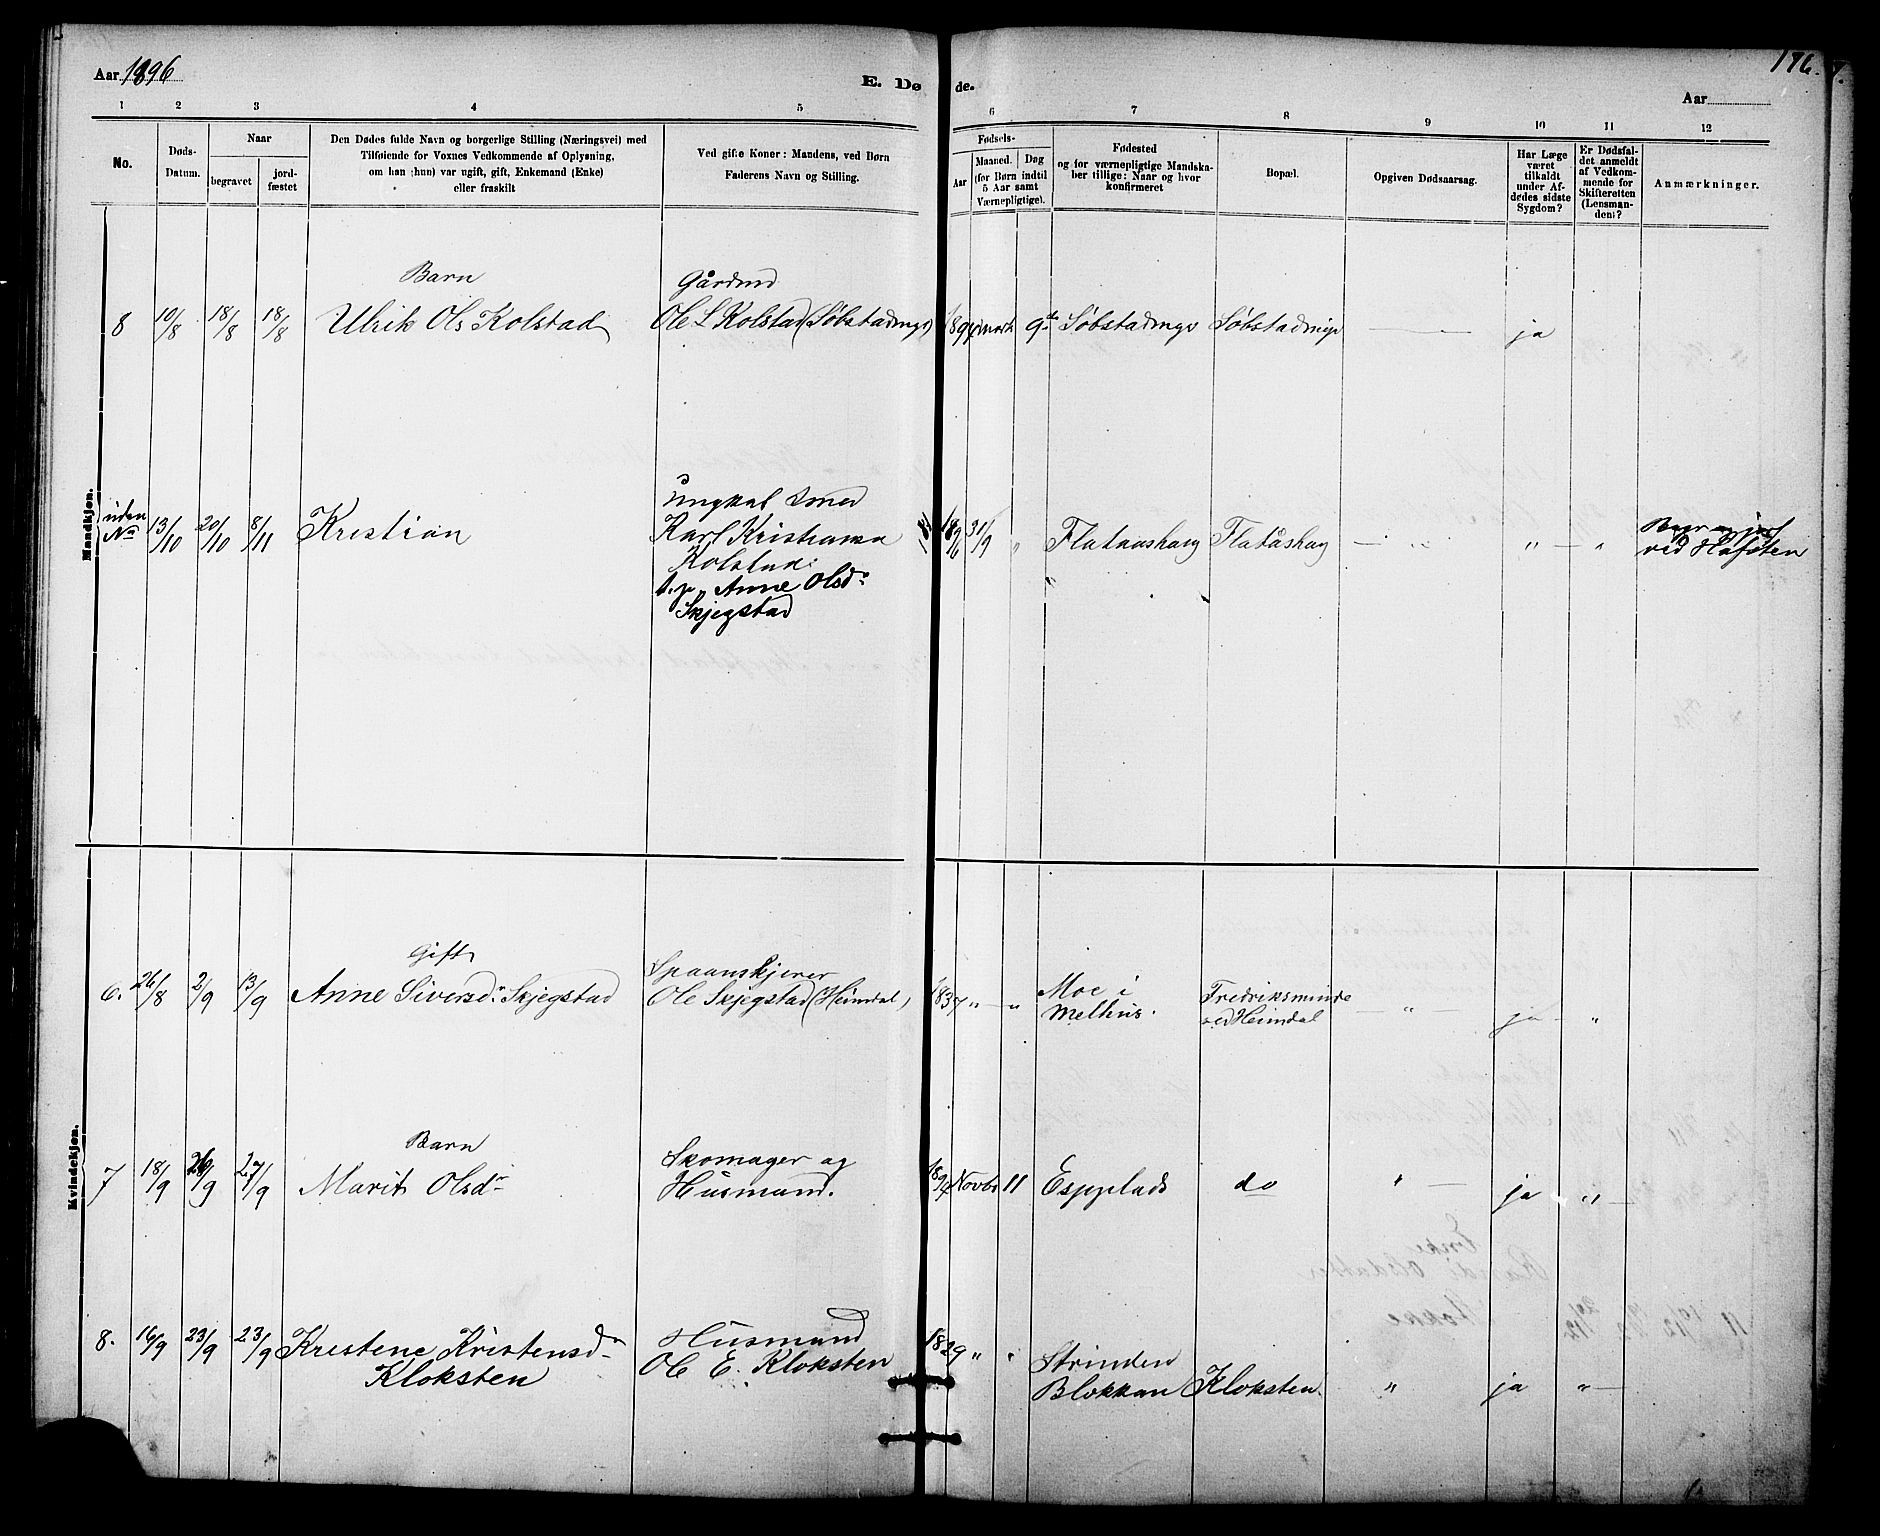 Aar 1896
E. Dø
de.
Aar
176.
1 2 3 4 5 6 7 8 9 10 11 12
No.
Døds-
Datum.
Naar
begravet
jord-
fæstet
Den Dødes fulde Navn og borgerlige Stilling (Næringsvei) med
Tilføiende for Voxnes Vedkommende af Oplysning,
om han (hun) var ugift, gift, Enkemand (Enke)
eller fraskilt
Ved gifte Koner: Mandens, ved Børn
Faderens Navn og Stilling.
Fødsels-
Aar
Maaned.
Døg
(for Børn indtil
5 Aar samt
Værnepligtige).
Fødested
og for værnepligtige Mandska-
ber tillige: Naar og hvor
konfirmeret
Bopæl.
Opgiven Dødsaarsag.
Har Læge
været
tilkaldt
under Af-
dødes sidste
Sygdom?
Er Dødsfal-
det anmeldt
af Vedkom-
mende for
Skifteretten
(Lensman-
den)?
Anmærkninger.
Mandkjøn.
8 10/8 18/8 18/8
Barn
Ulrik Ols Kolstad
Gårdmd
Ole L Kolstad (Søbstadmyr)
9de Søbstadmyr Søbstadmyr — ja
uden
No 13/10 20/10 8/11 Kristian
ungkal Smed
Karl Kristiansen
Kolstad
Anne Olsd.
Skjegstad
1896 31/9 " Flataashaug Flatåshaug — " — " — "
ved Hafsten
Kvindekjøn.
6. 26/8 2/9 13/9
Gift
Anne Siversdr Skjegstad
Spaanskjerer
Ole Skjegstad (Heimdal)
1837 " — "
Moe i
Melhus.
Fredriksminde
ved Heimdal
— " — ja — "
7 18/9 26/9 27/9
Barn
Marit Olsdr
Skomager og
Husmand.
Novbr 11 Espplads do " — ja " —
8. 16/9 23/9 23/9 Kristene Kristensdr
Kloksten
Husmand
Ole E. Kloksten
1829 " "
Strinden
Blokkan Kloksten. " ja " —